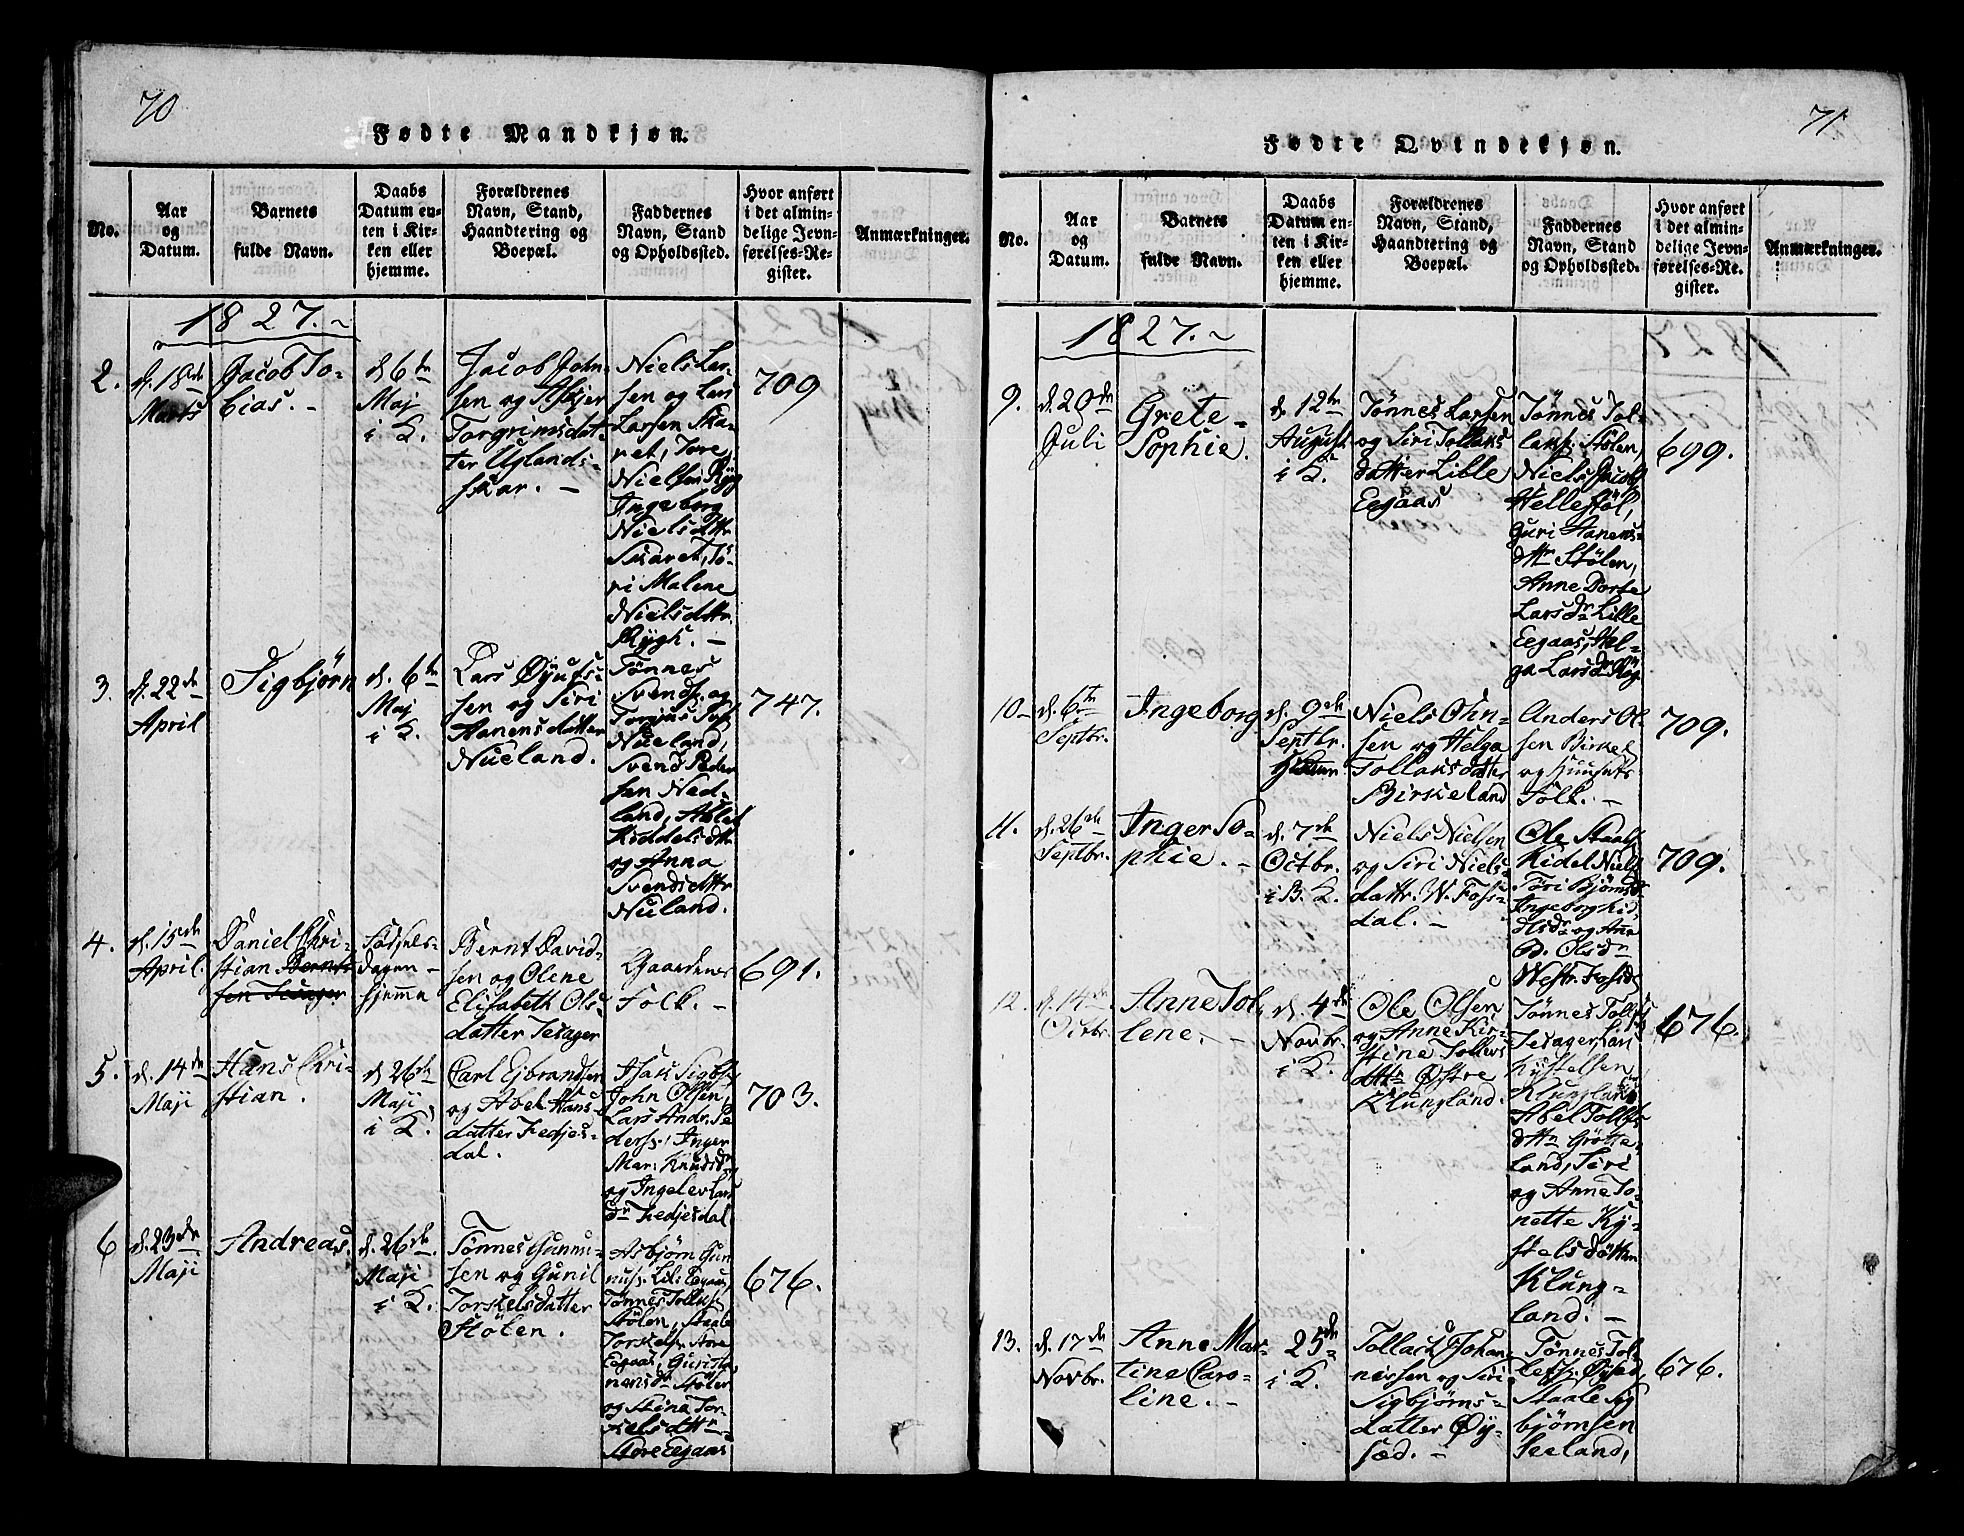 70
Fødte Mandkjøn.
No.
Aar
og
Datum.
Barnets
fulde Navn.
Daabs
Datum en-
ten i Kir-
ken eller
hjemme.
Forældrenes
Navn, Stand,
Haandtering og
Boepæl.
Faddernes
Navn, Stand
og Opholdssted.
Hvor anført
i det almin-
delige Jevn-
førelses-Re-
gister.
Anmærkninger.
1827.
2.
d. 18de
Marts
Jacob To-
bias.
d 6te
Maj
i K.
Jacob John-
sen og Askjer
Torgrimsdat-
ter Uglands-
skar.
Niels Lar-
sen og Lars
Larsen Ska-
ret, Tore
Nielsen Ryg
Ingeborg
Niels dttr
Skaret, Tö-
ri Malene
Nielsdttr
Rygh.
709
3.
d. 22de
April
Sigbjørn
d. 6te
Maj
i K.
Lars Øyufs-
sen og Siri
Aanensdatter
Nueland.
Tönnes
Svends. og
Torjus
Nueland,
Svend Peder
sen Nud-
land, Abel
Kiddelsdttr
og Anna
Svendsdttr
Nuland.
747.
4.
d. 15de
April.
Daniel Chri-
stian Bernt-
sen Tesager
Födsels-
dagen
hjemme
Bernt David-
sen og Olene
Elisabeth Ols-
datter Tesager
Gaardenes
Folk.
691.
5.
d. 14de
Maji
Hans Chri-
stian.
d 26te
Maji
i K.
Carl Ejbrandsen
og Abel Hans-
datter Fedjes-
dal.
Isak Sigb.
John Olsen,
Lars Andr. Pe
ders., Inger
Mar: Knudsdr
og Ingelev Lars
dr Fedjesdal
703.
6
d. 23de
Maji
Andreas.
d. 26de
Maji
i K.
Tönnes Gunnu-
sen og Gunil
Torkelsdatter
Stölen.
Asbjörn Gun
nufs. Lil: Eegaas,
Tönnes Tollefs
Stölen, Staale
Torkels. Store
Eegaas, Guri Aa
nensdr Stölen
og Stina Tor-
kelsdttr
Store Eegaas
676.
71
Fødte Qvindekjøn.
No.
Aar
og
Datum.
Barnets
fulde Navn.
Daabs
Datum en-
ten i Kir-
ken eller
hjemme.
Forældrenes
Navn, Stand,
Haandtering og
Boepæl.
Faddernes
Navn, Stand
og Opholdssted.
Hvor anført
i det almin-
delige Jevn-
førelses-Re-
gister.
Anmærkninger.
1827.
9.
d. 20de
Juli
Grete
Sophie.
d. 12te
August
i K.
Tönnes Larsen
og Siri Tollaks
datter Lille
Eegaas
Tönnes Tol-
laks. Stölen,
Niels Jacobs
Hellestöl,
Guri Aanens-
dttr Stölen,
Anne Dorte
Larsdr Lille
Eegaas, Hel-
ga Larsdr
699.
10
d. 6te
Septbr.
Ingeborg
d. 9de
Septbr.
Hjemme
Niels Ohn-
sen og Helga
Tollaksdatter
Birkeland
Anders Ol-
sen Birkel
og Huusets
Folk.
709.
11.
d. 26de
Septbr.
Inger So-
phie.
d. 7de
Octbr.
i B. K.
Niels Nielsen
og Siri Niels-
dattr. W. Foss-
dal.
Ole Staals
Kidel Niels
Töri Björnsdr
Ingeborg Kid
delsdr og Ane
B. Olsdr
Westr. Fossd
709.
12.
d. 14de
Octbr.
Anne Tol
lene.
d. 4de
Novbr.
i K.
Ole Olsen
og Anne Kir-
stine Tollevs
dttr Østre
Klungland.
Tönnes Tollefs
Tesager, Lars
Kystelsen
Klungland
Abel Tollefs
dttr Grötte-
land, Siri
og Anne To-
nette Ky-
stelsdötter
Klung-
land.
676.
13.
d. 17de
Novbr.
Anne Mar-
tine Caro-
line.
25de
i K.
Tollach Johan-
nessen og Siri
Sigbjörns-
datter Øy-
sæd.
Tönnes Tol-
lefs. Øysæd,
Staale Sig
bjørnsen
Seeland,
676.